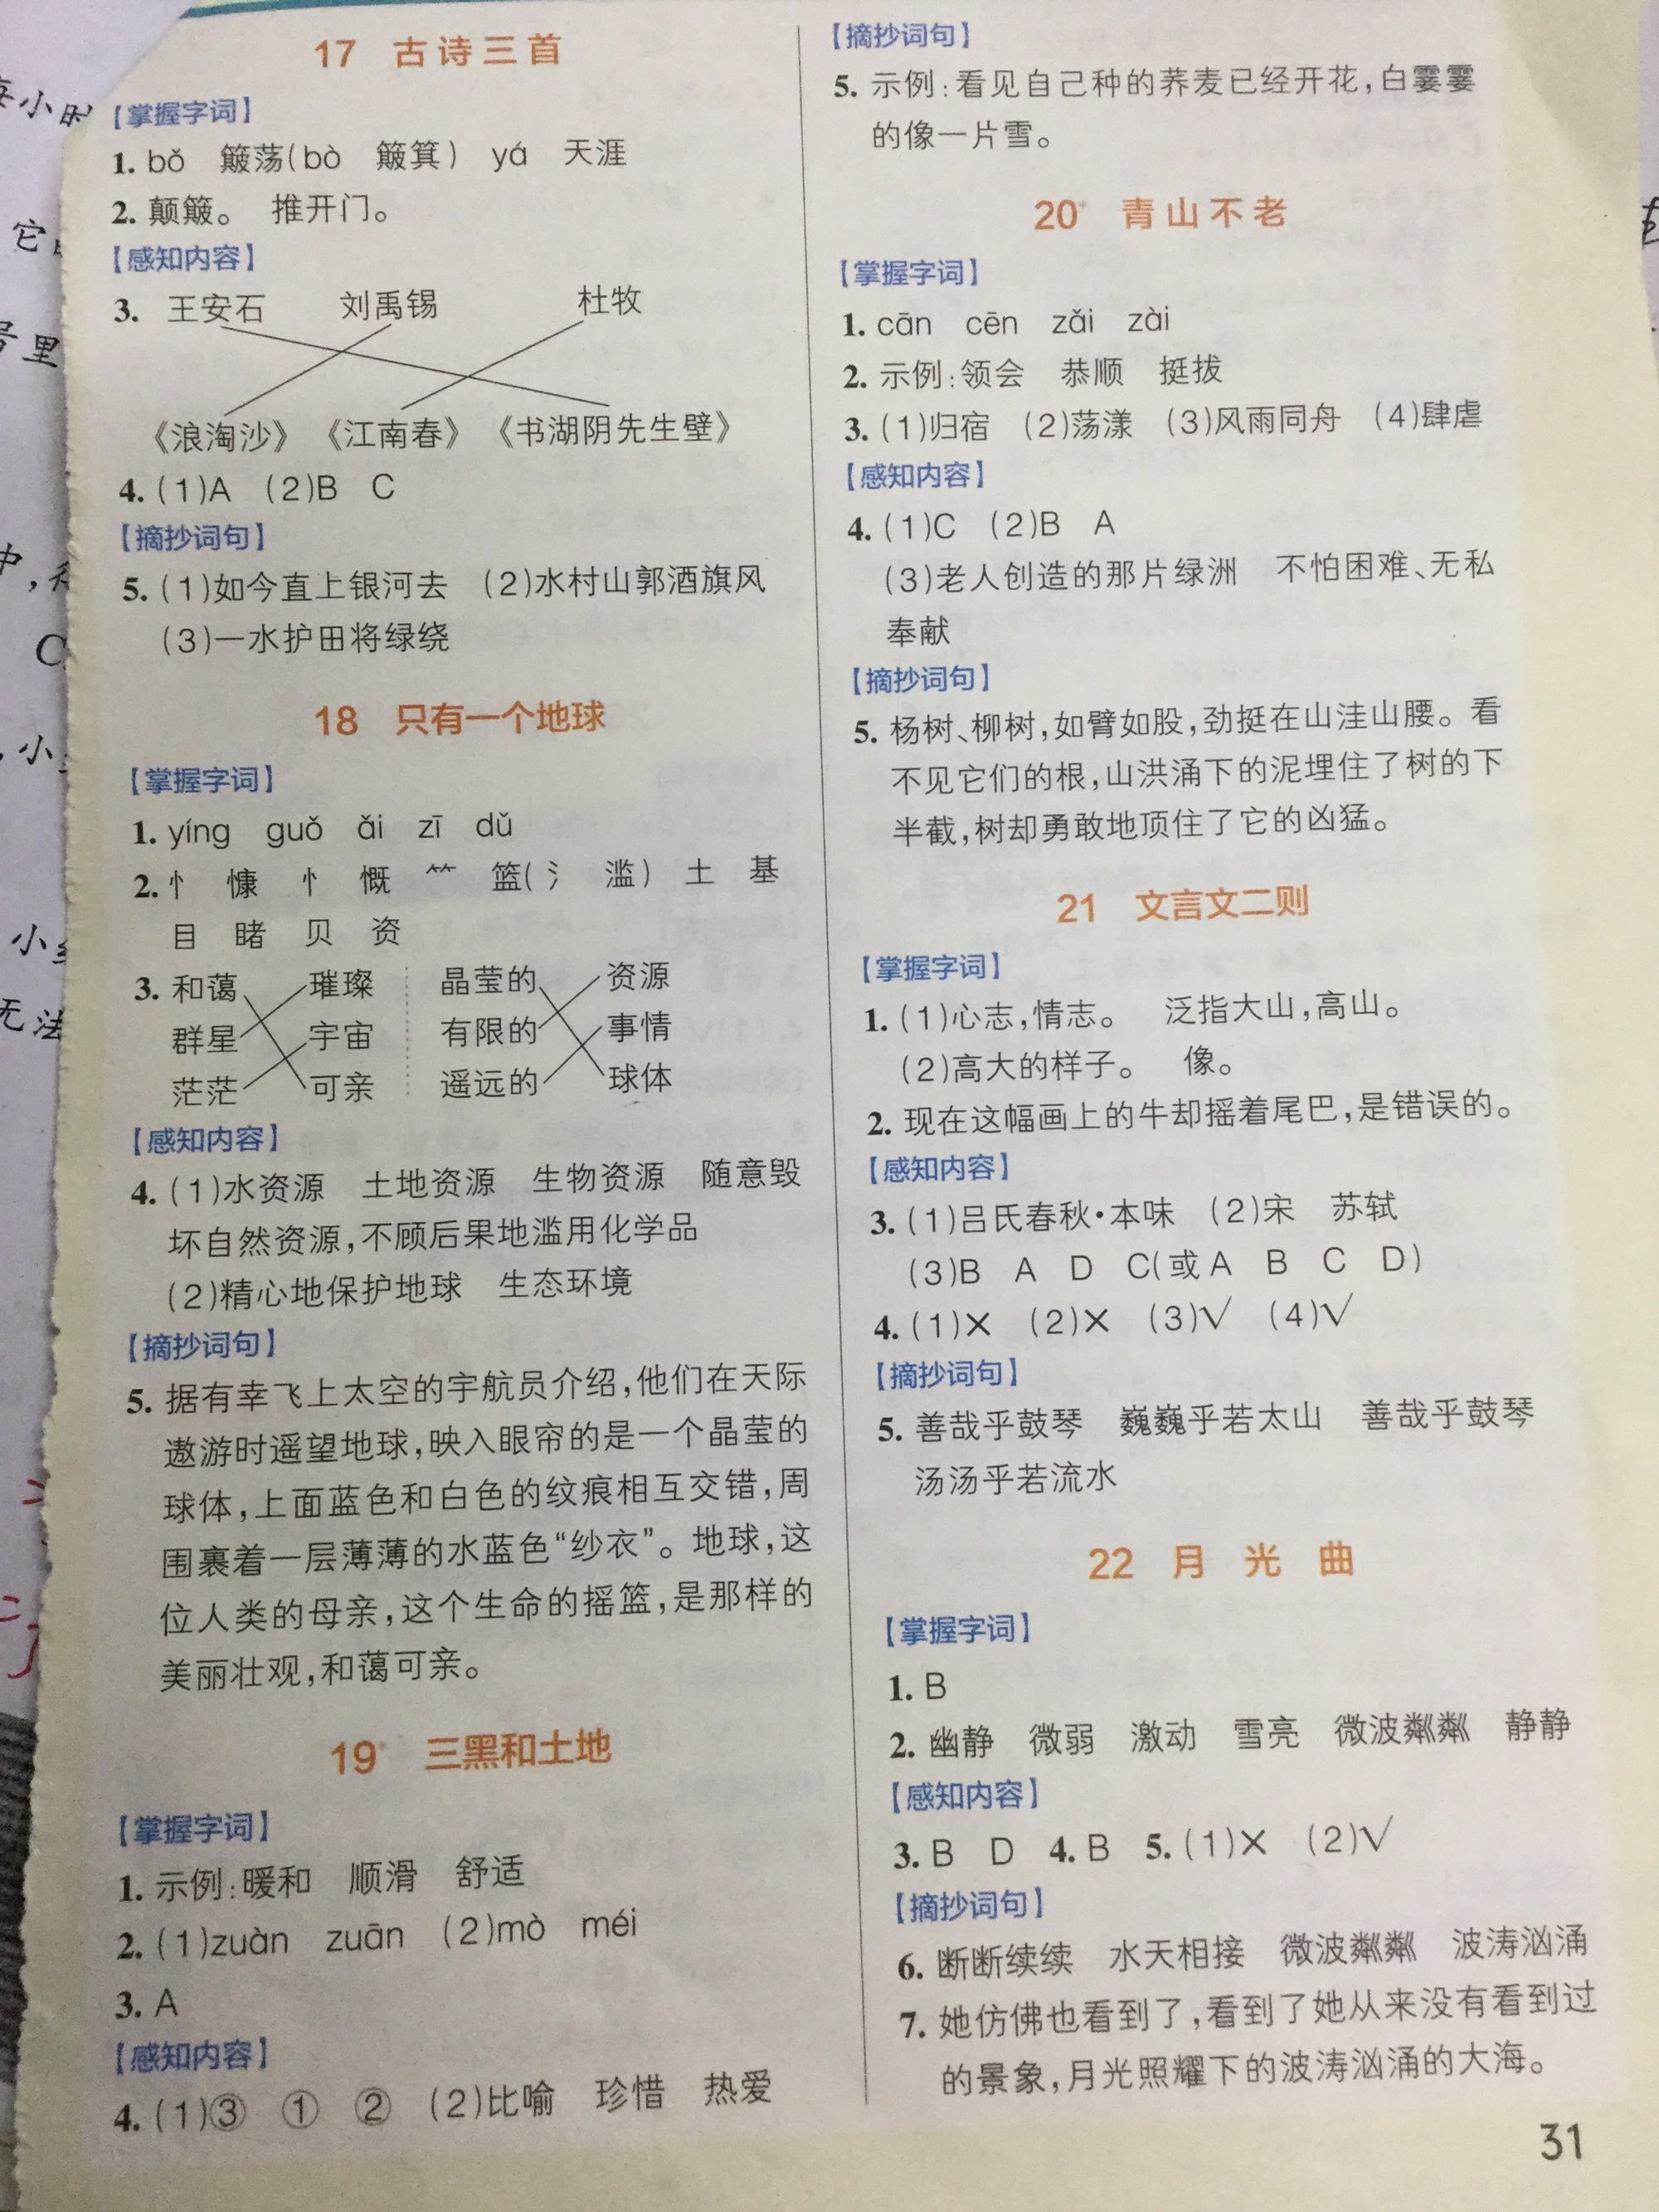 17 古诗三首
【掌握字词】
1. bǒ 簸荡(bò 簸箕) yá 天涯
2. 颠簸。 推开门。
【感知内容】
3. 王安石 刘禹锡 杜牧
《浪淘沙》 《江南春》 《书湖阴先生壁》
4. (1)A (2)B C
【摘抄词句】
5. (1)如今直上银河去 (2)水村山郭酒旗风
(3)一水护田将绿绕
18 只有一个地球
【掌握字词】
1. yíng guǒ ǎi zī dǔ
2. 忄 慷 忄 慨 ⺮ 篮(氵 滥) 土 基
目 睹 贝 资
3. 和蔼 璀璨 晶莹的 资源
群星 宇宙 有限的 事情
茫茫 可亲 遥远的 球体
【感知内容】
4. (1)水资源 土地资源 生物资源 随意毁
坏自然资源,不顾后果地滥用化学品
(2)精心地保护地球 生态环境
【摘抄词句】
5. 据有幸飞上太空的宇航员介绍,他们在天际
遨游时遥望地球,映入眼帘的是一个晶莹的
球体,上面蓝色和白色的纹痕相互交错,周
围裹着一层薄薄的水蓝色“纱衣”。地球,这
位人类的母亲,这个生命的摇篮,是那样的
美丽壮观,和蔼可亲。
19* 三黑和土地
【掌握字词】
1. 示例:暖和 顺滑 舒适
2. (1)zuàn zuān (2)mò méi
3. A
【感知内容】
4. (1)③ ① ② (2)比喻 珍惜 热爱
【摘抄词句】
5. 示例:看见自己种的荞麦已经开花,白霎霎
的像一片雪。
20* 青山不老
【掌握字词】
1. cān cēn zǎi zài
2. 示例:领会 恭顺 挺拔
3. (1)归宿 (2)荡漾 (3)风雨同舟 (4)肆虐
【感知内容】
4. (1)C (2)B A
(3)老人创造的那片绿洲 不怕困难、无私
奉献
【摘抄词句】
5. 杨树、柳树,如臂如股,劲挺在山洼山腰。看
不见它们的根,山洪涌下的泥埋住了树的下
半截,树却勇敢地顶住了它的凶猛。
21 文言文二则
【掌握字词】
1. (1)心志,情志。 泛指大山,高山。
(2)高大的样子。 像。
2. 现在这幅画上的牛却摇着尾巴,是错误的。
【感知内容】
3. (1)吕氏春秋·本味 (2)宋 苏轼
(3)B A D C(或A B C D)
4. (1)× (2)× (3)√ (4)√
【摘抄词句】
5. 善哉乎鼓琴 巍巍乎若太山 善哉乎鼓琴
汤汤乎若流水
22 月光曲
【掌握字词】
1. B
2. 幽静 微弱 激动 雪亮 微波粼粼 静静
【感知内容】
3. B D 4. B 5. (1)× (2)√
【摘抄词句】
6. 断断续续 水天相接 微波粼粼 波涛汹涌
7. 她仿佛也看到了,看到了她从来没有看到过
的景象,月光照耀下的波涛汹涌的大海。
31